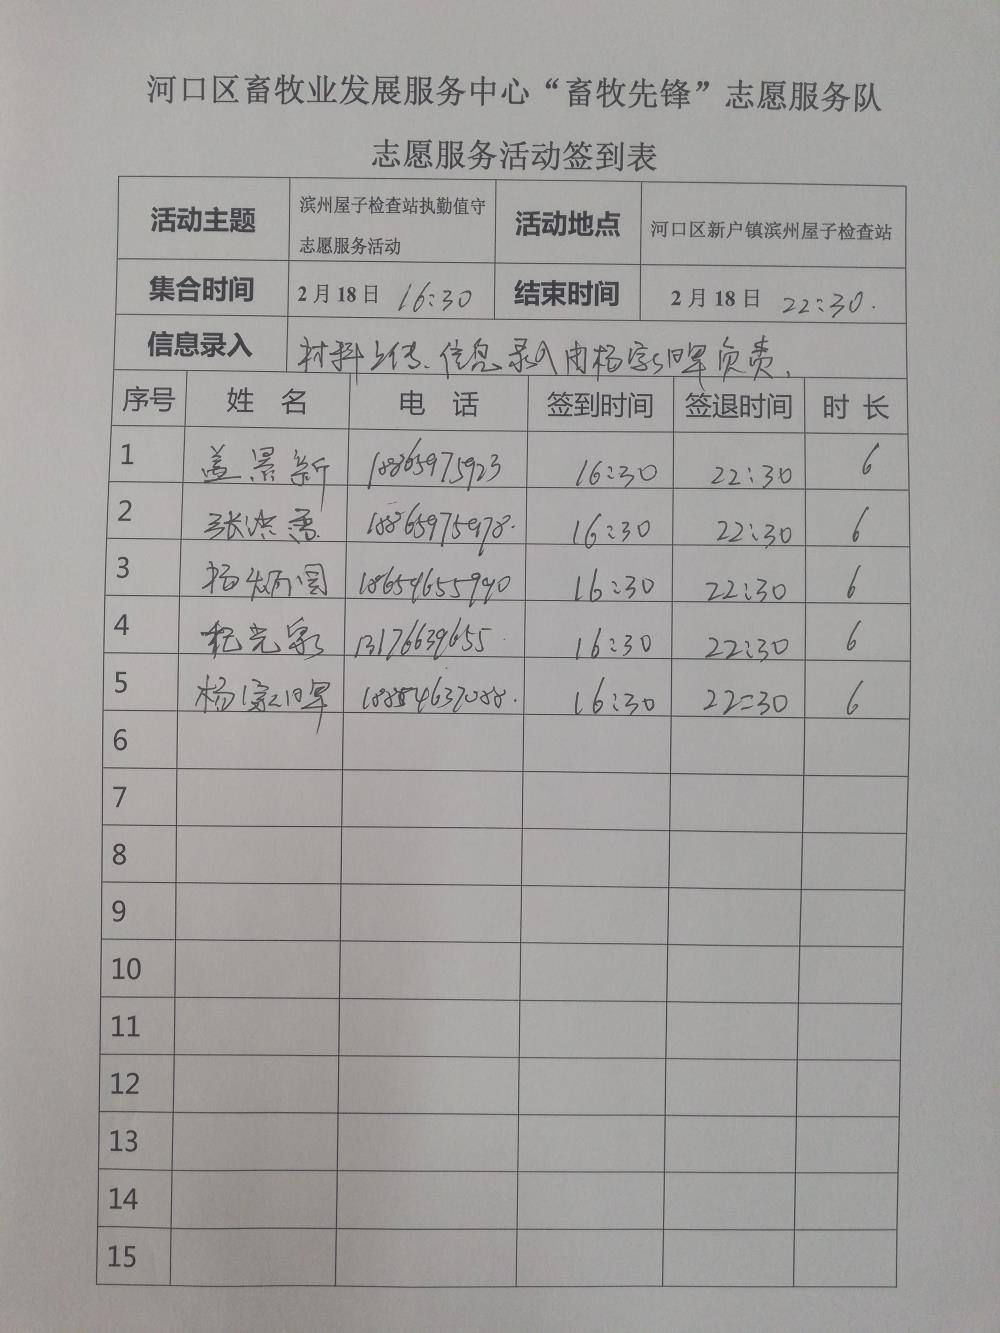 河口区畜牧业发展服务中心“畜牧先锋”志愿服务队
志愿服务活动签到表
活动主题 滨州屋子检查站执勤值守志愿服务活动 活动地点 河口区新户镇滨州屋子检查站
集合时间 2月18日 16:30 结束时间 2月18日 22:30.
信息录入 材料上传、信息录入由杨家珲负责.
序号 姓 名 电 话 签到时间 签退时间 时 长
1 盖景新 18865975923 16:30 22:30 6
2 张洪 18865975978. 16:30 22:30 6
3 杨炳国 18654655990 16:30 22:30 6
4 纪光泉 13176639655 16:30 22:30 6
5 杨家珲 18854637088. 16:30 22:30 6
6
7
8
9
10
11
12
13
14
15